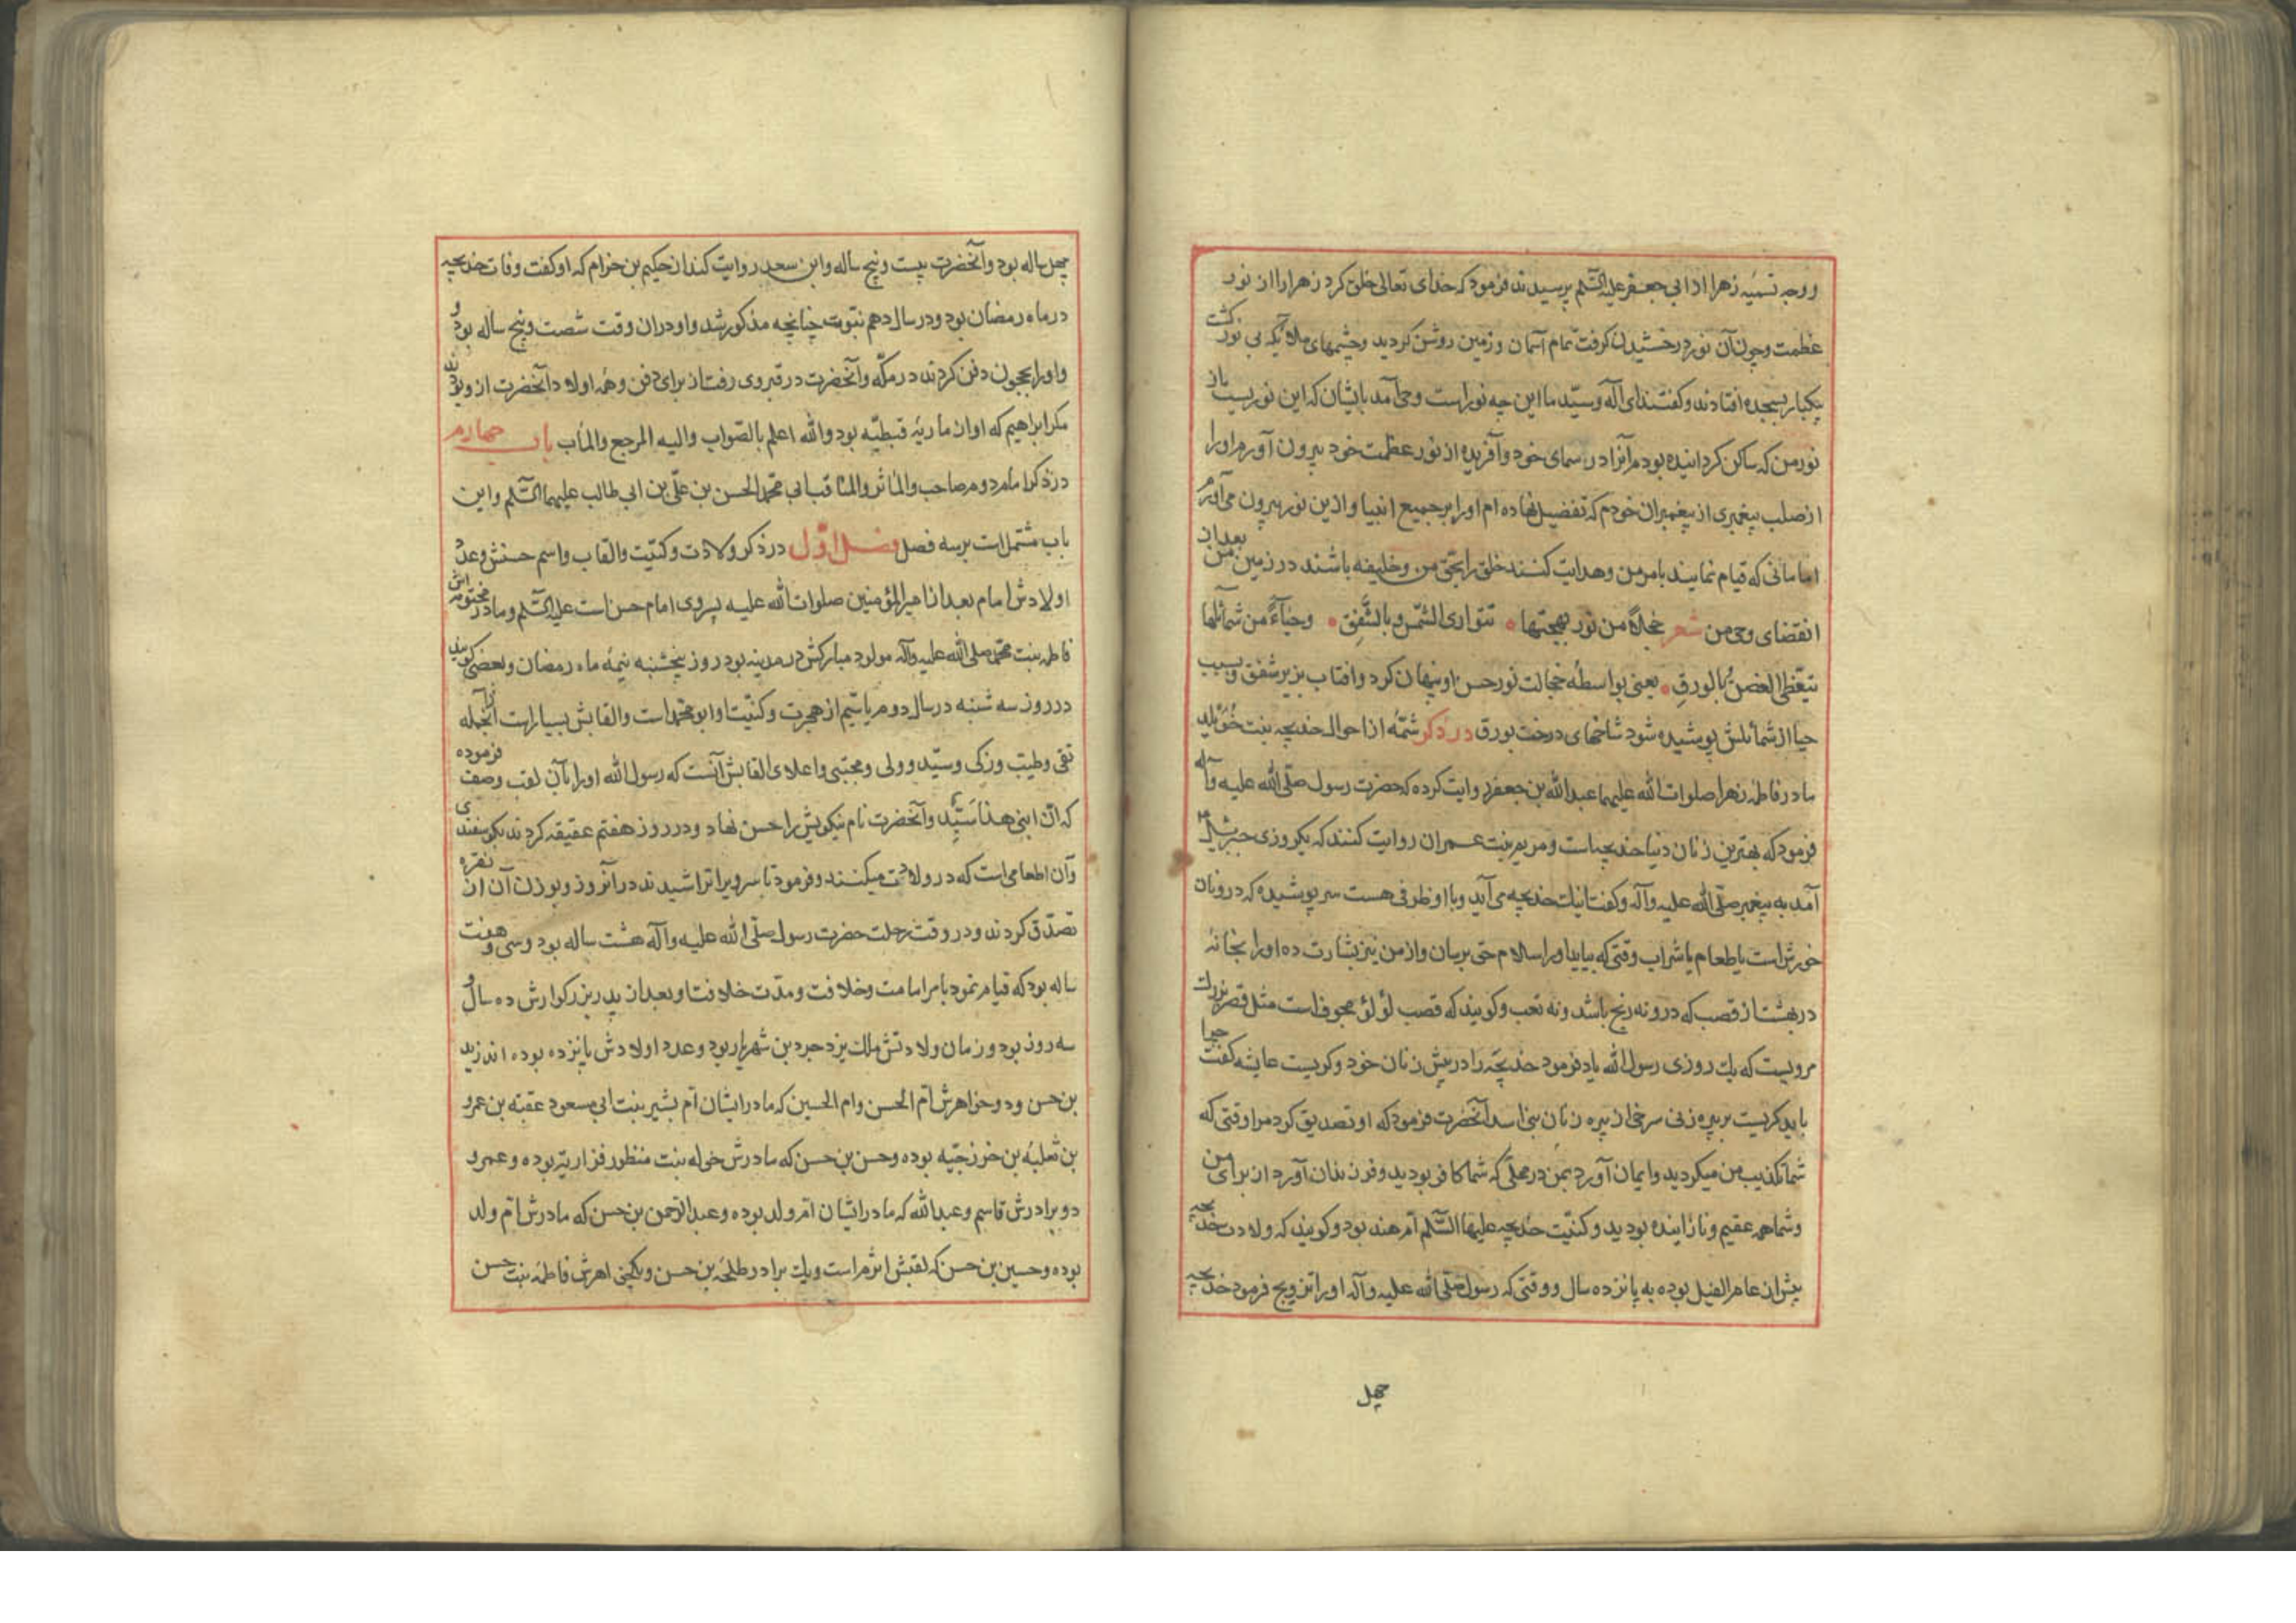 ووجه تسمیه زهرا از ابی جعفر علیه السّلم پرسیدند فرمود که خدای تعالی خلق کرد زهرا را از نور
عظمت و چون آن نور درخشیدن کرفت تمام آسمان و زمین روشن کردید و چشمهای ملائکه بی نور کشت
یکبار بسجده افتادند و کفتند ای آله و سیّد ما این چه نور است وحی آمد بایشان که این نوریست از
نور من که ساکن کردانیده بودم آنرا در سمای خود و آفریده از نور عظمت خود بیرون آورم او را
از صلب پیغمبری از پیغمبران خودم که تفضیل نهاده ام او را بر جمیع انبیا و ازین نور بیرون می آورم
امامانی که قیام نمایند بامر من و هدایت کنند خلق را بحق من و خلیفه باشند در زمین من بعد از
انقضای وحی من شعر خجلاً من نور بهجتها تتواری الشّمس بالشّفق وحیاءً من شمائلها
یتغطی الغصن بالورق یعنی بواسطه خجالت نور حسن او پنهان کرد و افتاب بزیر شفق و بسبب
حیا از شمائلش پوشیده شود شاخهای درخت بورق در ذکر شمّه از احوال خدیجه بنت خُوَیلد
مادر فاطمه زهرا صلوات الله علیهما عبدالله بن جعفر روایت کرده که حضرت رسول صلّی الله علیه وآله
فرمود که بهترین زنان دنیا خدیجه است و مریم بنت عمران روایت کنند که یکروزی جبرئیل
آمد به پیغمبر صلّی الله علیه وآله و کفت اینك خدیجه می آید و با او ظرفی هست سر پوشیده که درو نان
خورش است یا طعام یا شراب وقتی که بیاید او را سلام حق برسان و از من نیز بشارت ده او را بخانهٔ
در بهشت از قصب که درو نه رنج باشد و نه تعب و کویند که قصب لؤلؤ مجوف است مثل قصر بزرك
مرویست که یك روزی رسول الله یاد فرمود خدیجه را در پیش زنان خود و کریست عایشه کفت چرا
باید کریست بر پیره زنی سرخی از پیره زنان بنی اسد آنحضرت فرمود که او تصدیق کرد مرا وقتی که
شما تکذیب من میکردید و ایمان آورد بمن در محلّی که شما کافر بودید و فرزندان آورد از برای من
و شما همه عقیم و نازاینده بودید و کنیّت خدیجه علیها السّلم ام هند بود و کویند که ولادت خدیجه
پیش از عام الفیل بوده به پانزده سال و وقتی که رسول صلّی الله علیه وآله او را تزویج فرمود خدیجه
چهل
چهل ساله بود و آنحضرت بیست و پنج ساله و ابن سعد روایت کند از حکیم بن حزام که او کفت وفات خدیجه
در ماه رمضان بود و در سال دهم نبوت چنانچه مذکور شد و او در ان وقت شصت و پنج ساله بود و
و او را بحجون دفن کردند در مکّه و آنحضرت در قبر وی رفت از برای دفن و همه اولاد آنحضرت از و بودند
مکر ابراهیم که او از ماریهٔ قبطیّه بود والله اعلم بالصّواب والیه المرجع والمأب باب چهارم
در ذکر امام دوم صاحب والماثر والمناقب ابی محمد الحسن بن علیّ بن ابی طالب علیهما السّلم و این
باب مشتمل است بر سه فصل فصل اوّل در ذکر ولادت و کنیّت والقاب واسم حسنش و عدد
اولادش امام بعد از امیرالمؤمنین صلوات الله علیه پسر وی امام حسن است علیه السّلم و مادر محترمه اش
فاطمه بنت محمّد صلی الله علیه وآله مولود مبارکش در مدینه بود روز پنجشنبه نیمه ماه رمضان و بعضی کویند
در روز سه شنبه در سال دوم یا سیّم از هجرت و کنیّت او ابو محمّد است و القابش بسیار است از آنجمله
تقی و طیّب و زکی و سیّد و ولی و مجتبی و اعلای القابش آنست که رسول الله او را بآن لقب وصف فرموده
که انّ ابنی هذا سَیّد و آنحضرت نام نیکویش را حسن نهاد و در روز هفتم عقیقه کردند بکوسفندی
و آن اطعامی است که در ولادت میکنند و فرمود تا سر ویرا تراشیدند در آنروز و بوزن آن از نقره
تصدّق کردند و در وقت رحلت حضرت رسول صلّی الله علیه وآله هشت ساله بود و سی و هفت
ساله بود که قیام نمود بامر امامت و خلافت و مدّت خلافت او بعد از پدر بزرکوارش ده سال و
سه روز بود و زمان ولادتش ملك یزدجرد بن شهریار بود و عدد اولادش پانزده بوده اند زید
بن حسن و دو خواهرش اُمّ الحسن و ام الحسین که مادر ایشان اُم بشیر بنت ابی مسعود عقبة بن عمرو
بن ثعلبه بن خزرجیّه بوده و حسن بن حسن که مادرش خوله بنت منظور فزاریّه بوده و عمرو
دو برادرش قاسم و عبدالله که مادر ایشان ام ولد بوده و عبدالرّحمن بن حسن که مادرش اُم ولد
بوده و حسین بن حسن که لقبش اثرم است و یك برادر طلحه بن حسن و یکخواهرش فاطمه بنت حسن